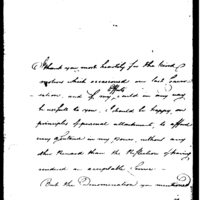 I thank you most heartily for the kind
motives which occasioned our last Conver-
sation, and if my Efforts could in any way
be useful to you, I should be happy, on
principles of personal attachment, to afford
any assistance in my power, without any
other Reward than the Reflection of having
rendered an acceptable Service
But the Denomination you mentioned